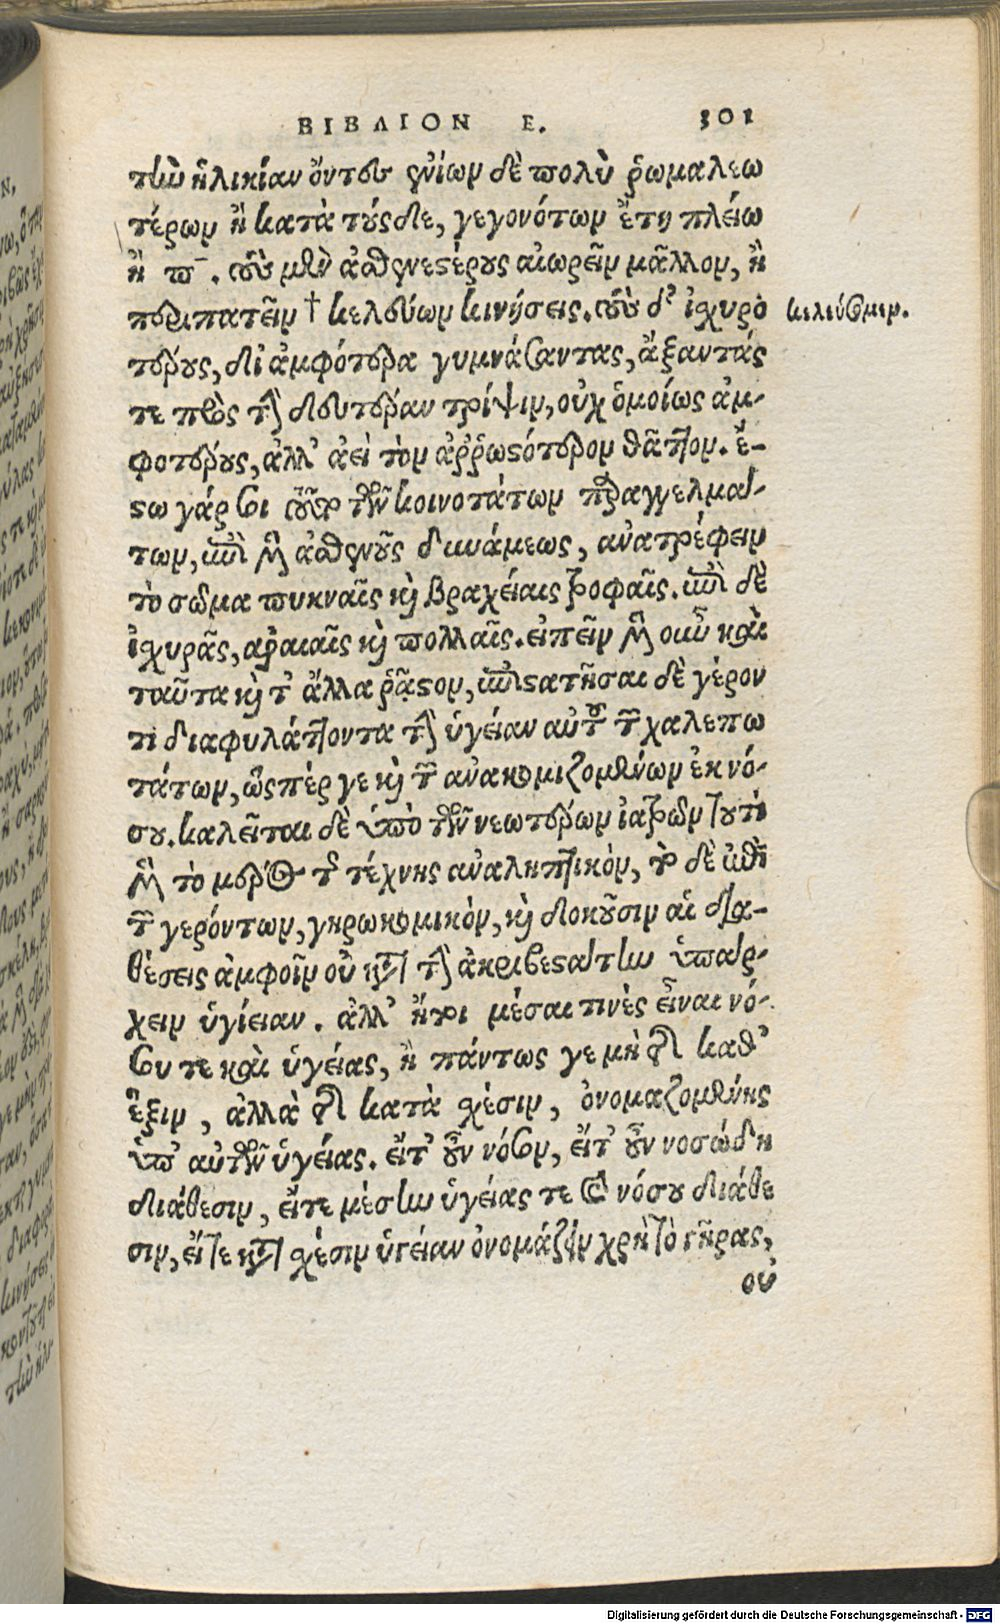 ΒΙΒΛΙΟΝ Ε. 301
τὴν ἡλικίαν ὄντες ἐνίων δὲ πολὺ ῥωμαλεω
τέρων ἢ κατὰ τούσδε, γεγονότων ἔτη πλείω
ἢ π̄. τοὺς μὲν ἀσθενεστέρους αἰωρεῖν μᾶλλον, ἢ
περιπατεῖν † κελεύων κινήσεις. τοὺς δ᾽ ἰσχυρο
κελεύομεν.
τέρους, δι᾽ ἀμφότερα γυμνάσαντας, ἄξαντάς
τε πρὸς τὴν δευτέραν τρίψιν, οὐχ ὁμοίως ἀμ-
φοτέρους, ἀλλ᾽ ἀεὶ τὸν ἀῤῥωστότερον θᾶττον. ἔ-
στω γάρ σοι τοῦτο τῶν κοινοτάτων παραγγελμά-
των, ἐπὶ μὲν ἀσθενοῦς δυνάμεως, ἀνατρέφειν
τὸ σῶμα πυκναῖς καὶ βραχείαις τροφαῖς. ἐπὶ δὲ
ἰσχυρᾶς, ἀραιαῖς καὶ πολλαῖς. εἰπεῖν μὲν οὖν καὶ
ταῦτα καὶ τ᾽ ἄλλα ῥᾷστον, ἐπιστατῆσαι δὲ γέρον
τι διαφυλάττοντα τὴν ὑγείαν αὐτοῦ τῶν χαλεπω
τάτων, ὥσπέρ γε καὶ τῶν ἀνακομιζομένων ἐκ νό-
σου. καλεῖται δὲ ὑπὸ τῶν νεωτέρων ἰατρῶν τουτὶ
μὲν τὸ μέρος τῆς τέχνης ἀναληπτικὸν, τὸ δὲ ἐπὶ
τῶν γερόντων, γηρωκομικὸν, καὶ δοκοῦσιν αἱ δια-
θέσεις ἀμφοῖν οὐ κατὰ τὴν ἀκριβεστάτην ὑπάρ-
χειν ὑγίειαν. ἀλλ᾽ ἤτοι μέσαι τινὲς εἶναι νό-
σου τε καὶ ὑγείας, ἢ πάντως γε μὴ τῆς καθ᾽
ἕξιν, ἀλλὰ τῆς κατὰ σχέσιν, ὀνομαζομένης
ὑπ᾽ αὐτῶν ὑγείας. εἴτ᾽ οὖν νόσον, εἴτ᾽ οὖν νοσώδη
διάθεσιν, εἴτε μέσην ὑγείας τε καὶ νόσου διάθε
σιν, εἴτε κατὰ σχέσιν ὑγείαν ὀνομάζειν χρὴ τὸ γῆρας,
οὐ
Digitalisierung gefördert durch die Deutsche Forschungsgemeinschaft - DFG